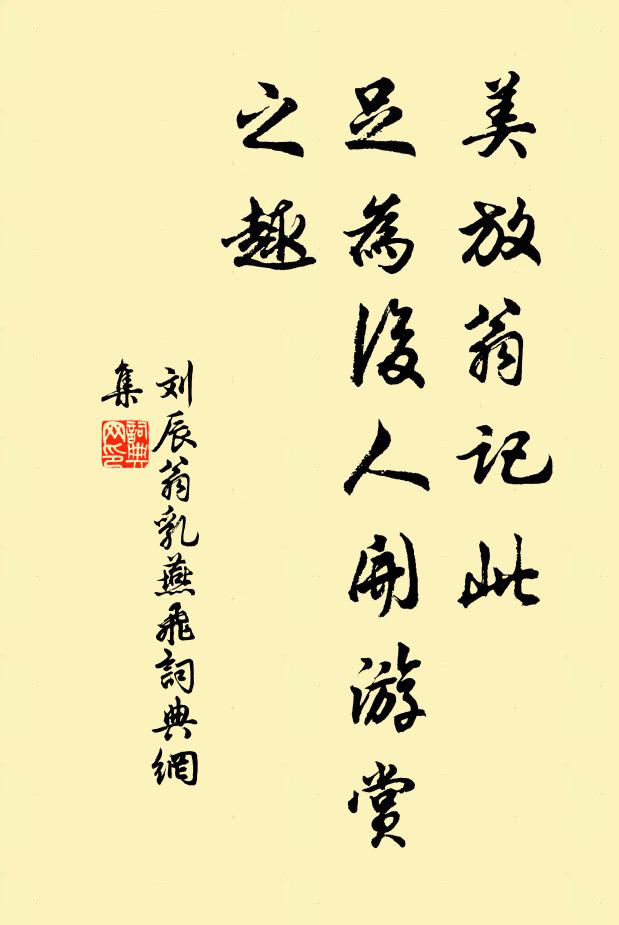 美放翁记此
足為後人開游賞
之趣
刘辰翁乳燕飛詞典網
集
詞典
网印